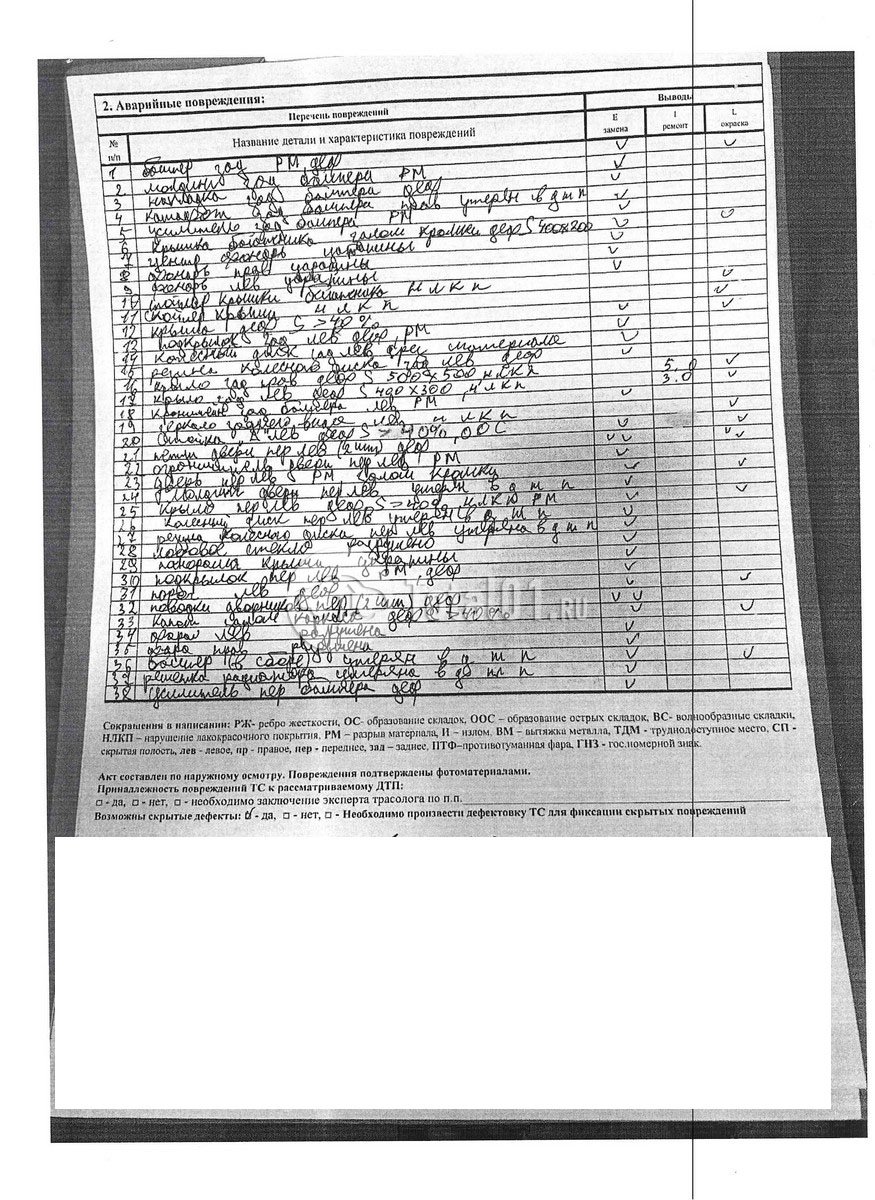 2. Аварийные повреждения:
Перечень повреждений
Выводы
№ п/п
Название детали и характеристика повреждений
E замена
I ремонт
L окраска
1 бампер зад РМ, деф
2 молдинг зад бампера РМ
3 накладка зад бампера деф
4 зад бампера прав утерян в д т п
5 усилитель зад бампера РМ
6 крышка багажника залом кромки деф S 400х200
7 центр фонарь царапины
8 фонарь прав царапины
9 фонарь лев царапины
10 спойлер крышки багажника н л к п
11 спойлер крыши н л к п
12 крыша деф S >40%
13 подкрылок зад лев деф, РМ
14 колесный диск зад лев фрез материала
15 резина колесного диска зад лев деф
16 крыло зад прав деф S 500х500 нлкп 5.0
17 крыло зад лев деф S 400х300, нлкп 3.0
18 кронштен зад бампера лев РМ
19 зеркало заднего вида лев н л к п
20 Стойка А лев деф S > 40%, ООС
21 петли двери пер лев (2 шт) деф
22 ограничитель двери пер лев РМ
23 дверь пер лев РМ залом кромки
24 Молдинг двери пер лев утерян в д т п
25 Крыло пер лев деф S >40% НЛКП РМ
26 Колесный диск пер лев утерян в д т п
27 резина колесного диска пер лев утеряна в д т п
28 лобовое стекло разрушено
29 панорама крыши царапины
30 подкрылок пер лев РМ, деф
31 порог лев деф
32 поводки дворников пер (2 шт) деф
33 Капот залом каркаса деф S >40%
34 фара лев разрушена
35 фара прав разрушена
36 Бампер (в сборе) утерян в д т п
37 решетка радиатора утеряна в д т п
38 усилитель пер бампера деф
.RU
Сокращения в написании: РЖ- ребро жесткости, ОС- образование складок, ООС – образование острых складок, ВС- волнообразные складки,
НЛКП – нарушение лакокрасочного покрытия, РМ – разрыв материала, И – излом, ВМ – вытяжка металла, ТДМ - труднодоступное место, СП -
скрытая полость, лев - левое, пр - правое, пер - переднее, зад – заднее, ПТФ–противотуманная фара, ГНЗ - гос.номерной знак.
Акт составлен по наружному осмотру. Повреждения подтверждены фотоматериалами.
Принадлежность повреждений ТС к рассматриваемому ДТП:
□ - да, □ - нет, □ - необходимо заключение эксперта трасолога по п.п.
Возможны скрытые дефекты: ☑ - да, □ - нет, □ - Необходимо произвести дефектовку ТС для фиксации скрытых повреждений